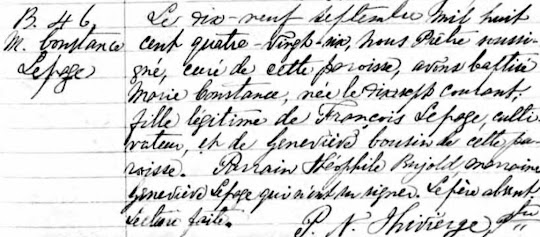 B. 46.
M. Constance
Lepage
Le dix-neuf septembre mil huit
cent quatre-vingt-six, nous Prêtre soussi-
gné, curé de cette paroisse, avons baptisé
Marie Constance, née le dixsept courant,
fille légitime de François Lepage, culti-
vateur, et de Geneviève Cousin de cette pa-
roisse. Parrain Théophile Bujold, marraine
Geneviève Lepage qui n'ont su signer. Le père absent
Lecture faite.
P. N. Thivierge, Ptre